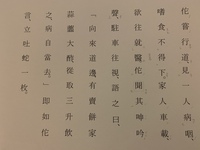 佗嘗行道見一人病咽
嗜食不得下家人車載
欲往就醫佗聞其呻吟
聲駐車往視語之曰
向來道邊有賣餅家
蒜虀大酢從取三升飲
之病自當去即如佗
言立吐蛇一枚